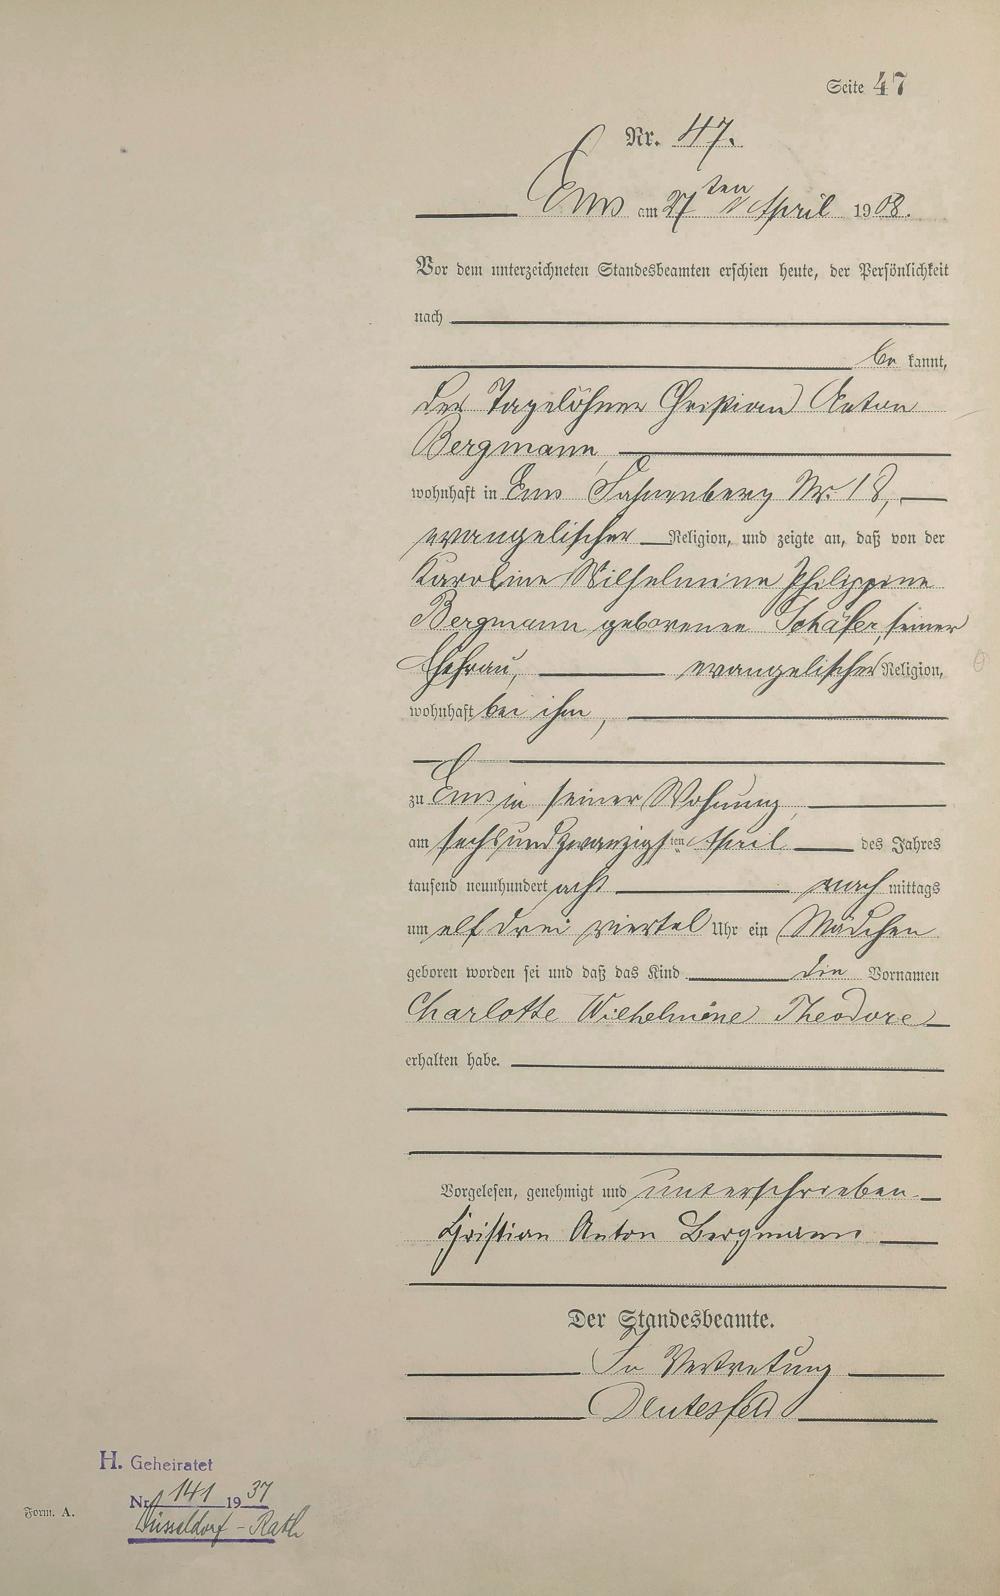 Seite 47
Nr. 47.
Ems am 27ten April 1908.
Vor dem unterzeichneten Standesbeamten erschien heute, der Persönlichkeit
nach
be kannt,
der Tagelöhner Christian Anton
Bergmann,
wohnhaft in Ems Nr. 18,
evangelischer Religion, und zeigte an, daß von der
Karoline Wilhelmine Philippine
Bergmann geborenen Schäfer, seiner
Ehefrau, evangelischer Religion,
wohnhaft bei ihm,
zu Ems in seiner Wohnung,
am sechsundzwanzigsten April des Jahres
tausend neunhundert acht nach mittags
um elf drei viertel Uhr ein Mädchen
geboren worden sei und daß das Kind die Vornamen
Charlotte Wilhelmine Theodore
erhalten habe.
Vorgelesen, genehmigt und unterschrieben.
Christian Anton Bergmann
Der Standesbeamte.
In Vertretung
H. Geheiratet
Nr. 141 1937
Düsseldorf-Rath
Form. A.